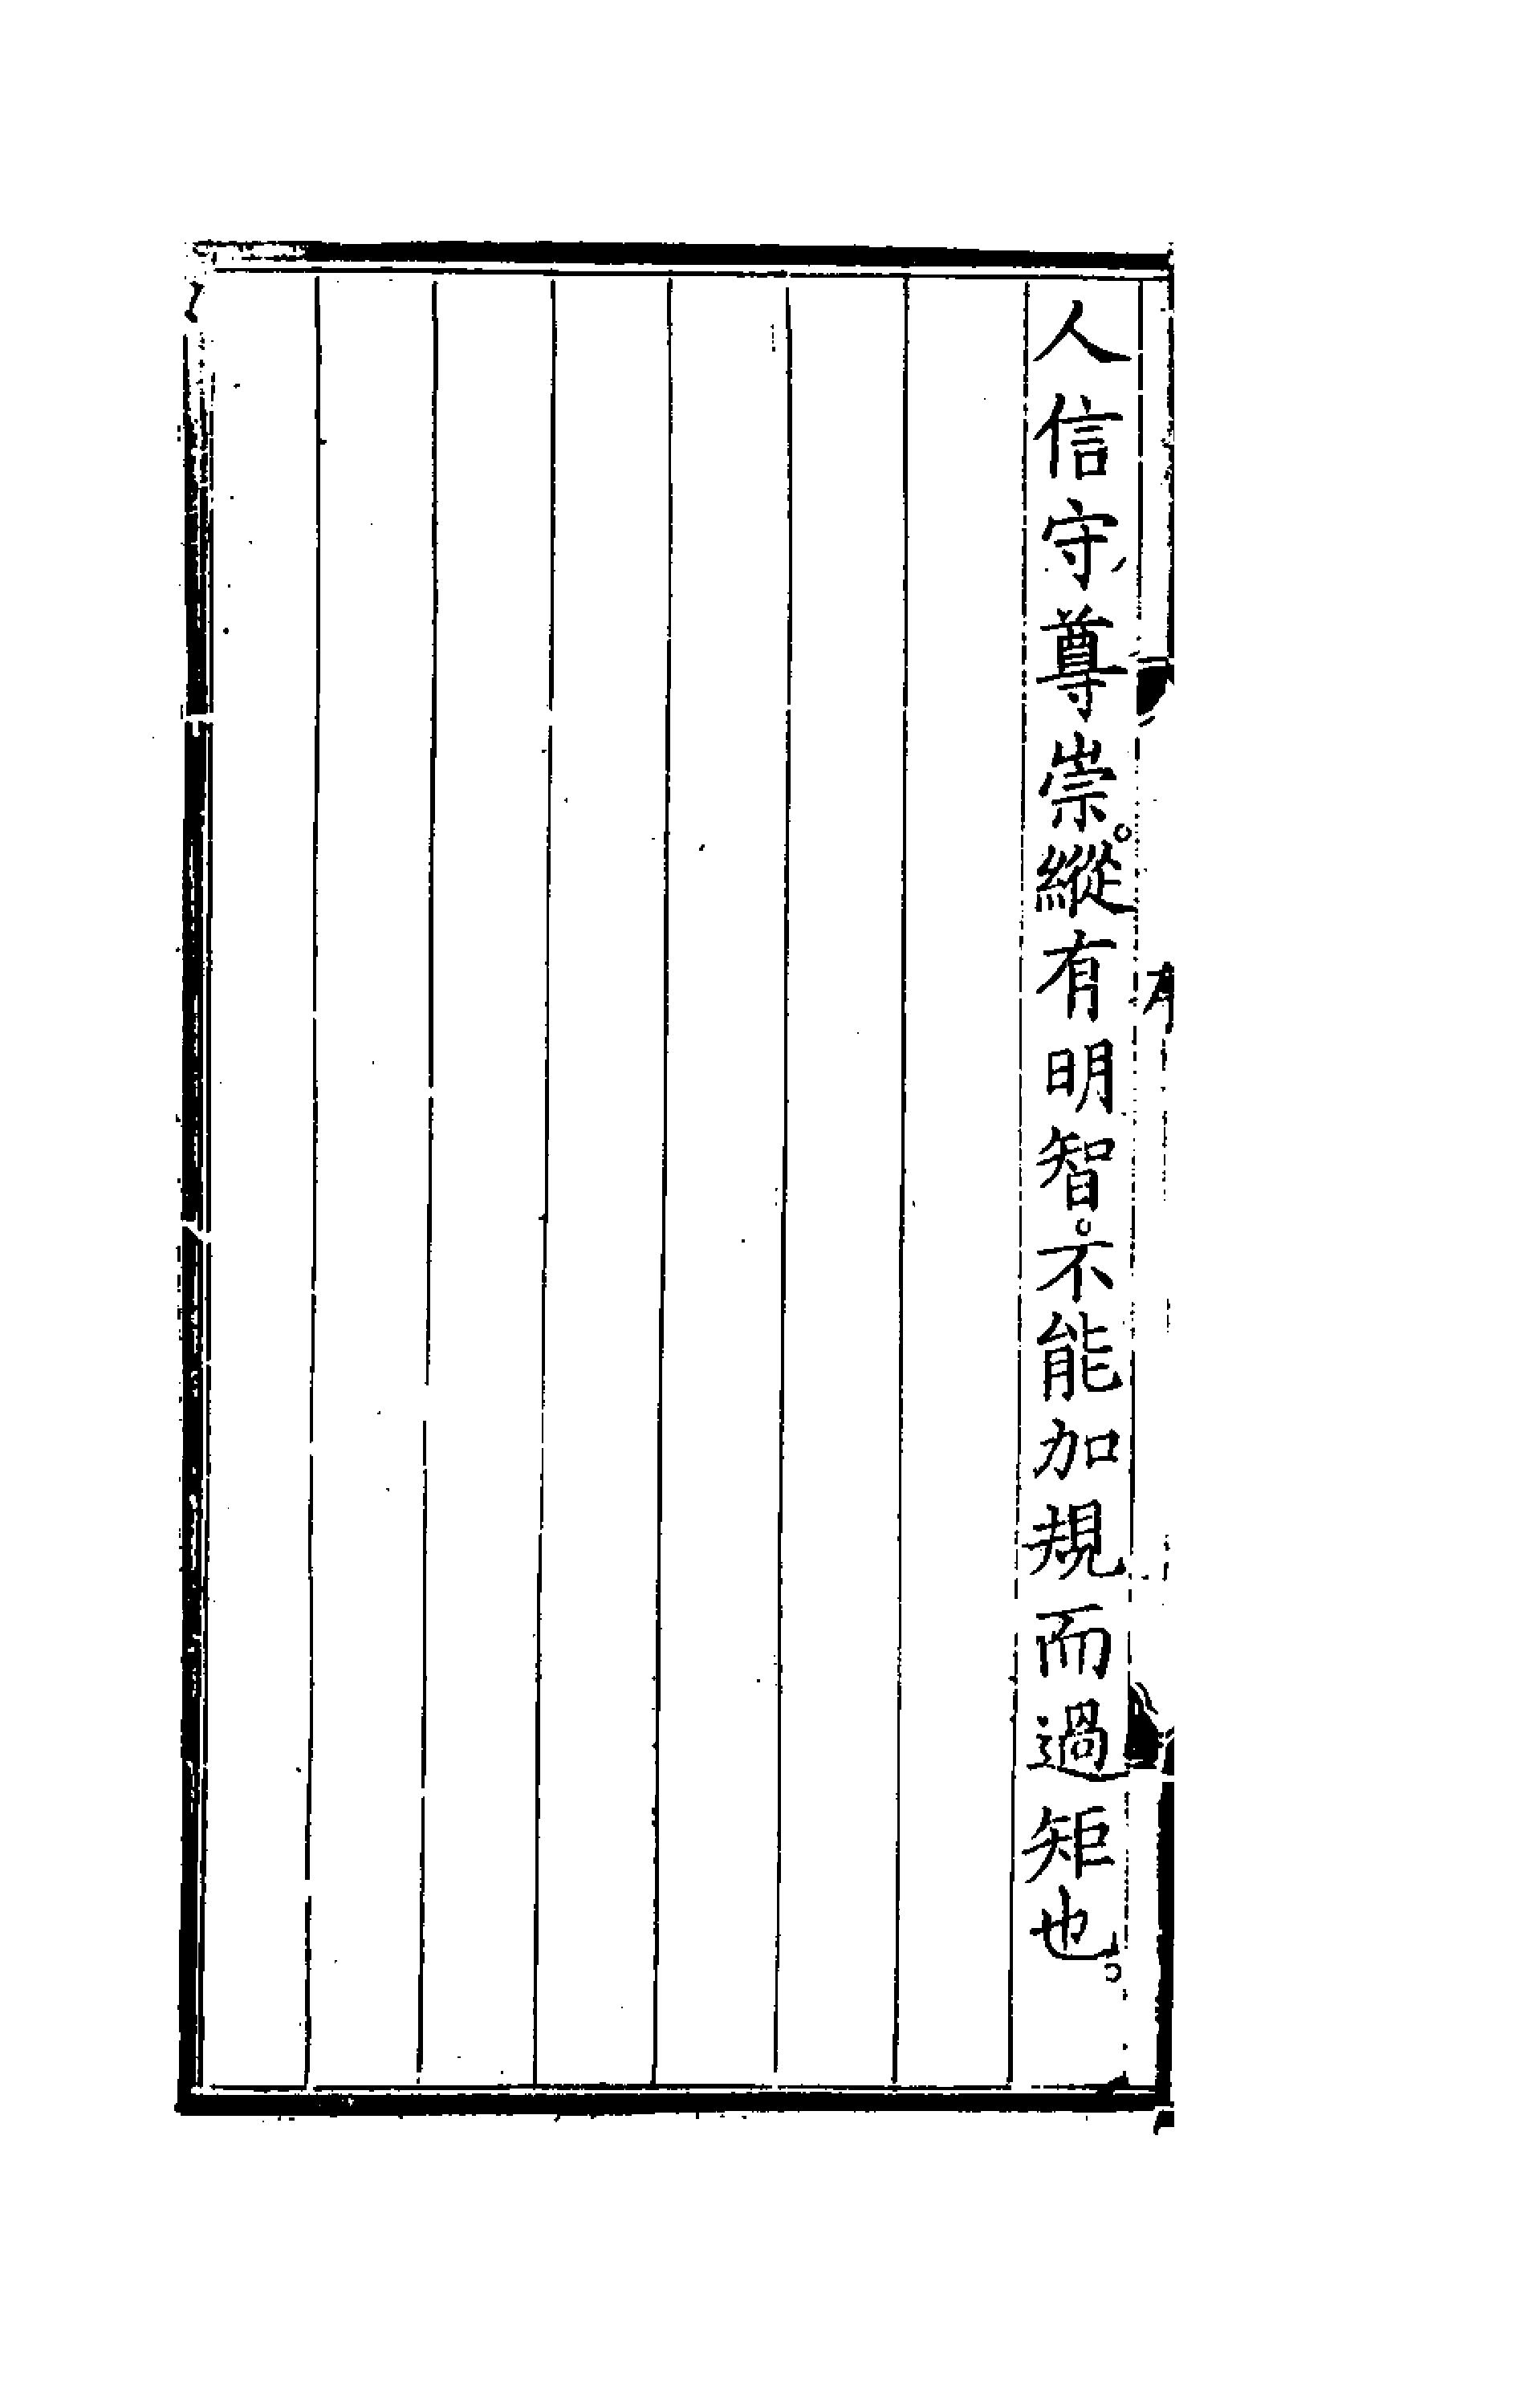 人信守尊崇。縱有明智。不能加規而過矩也。